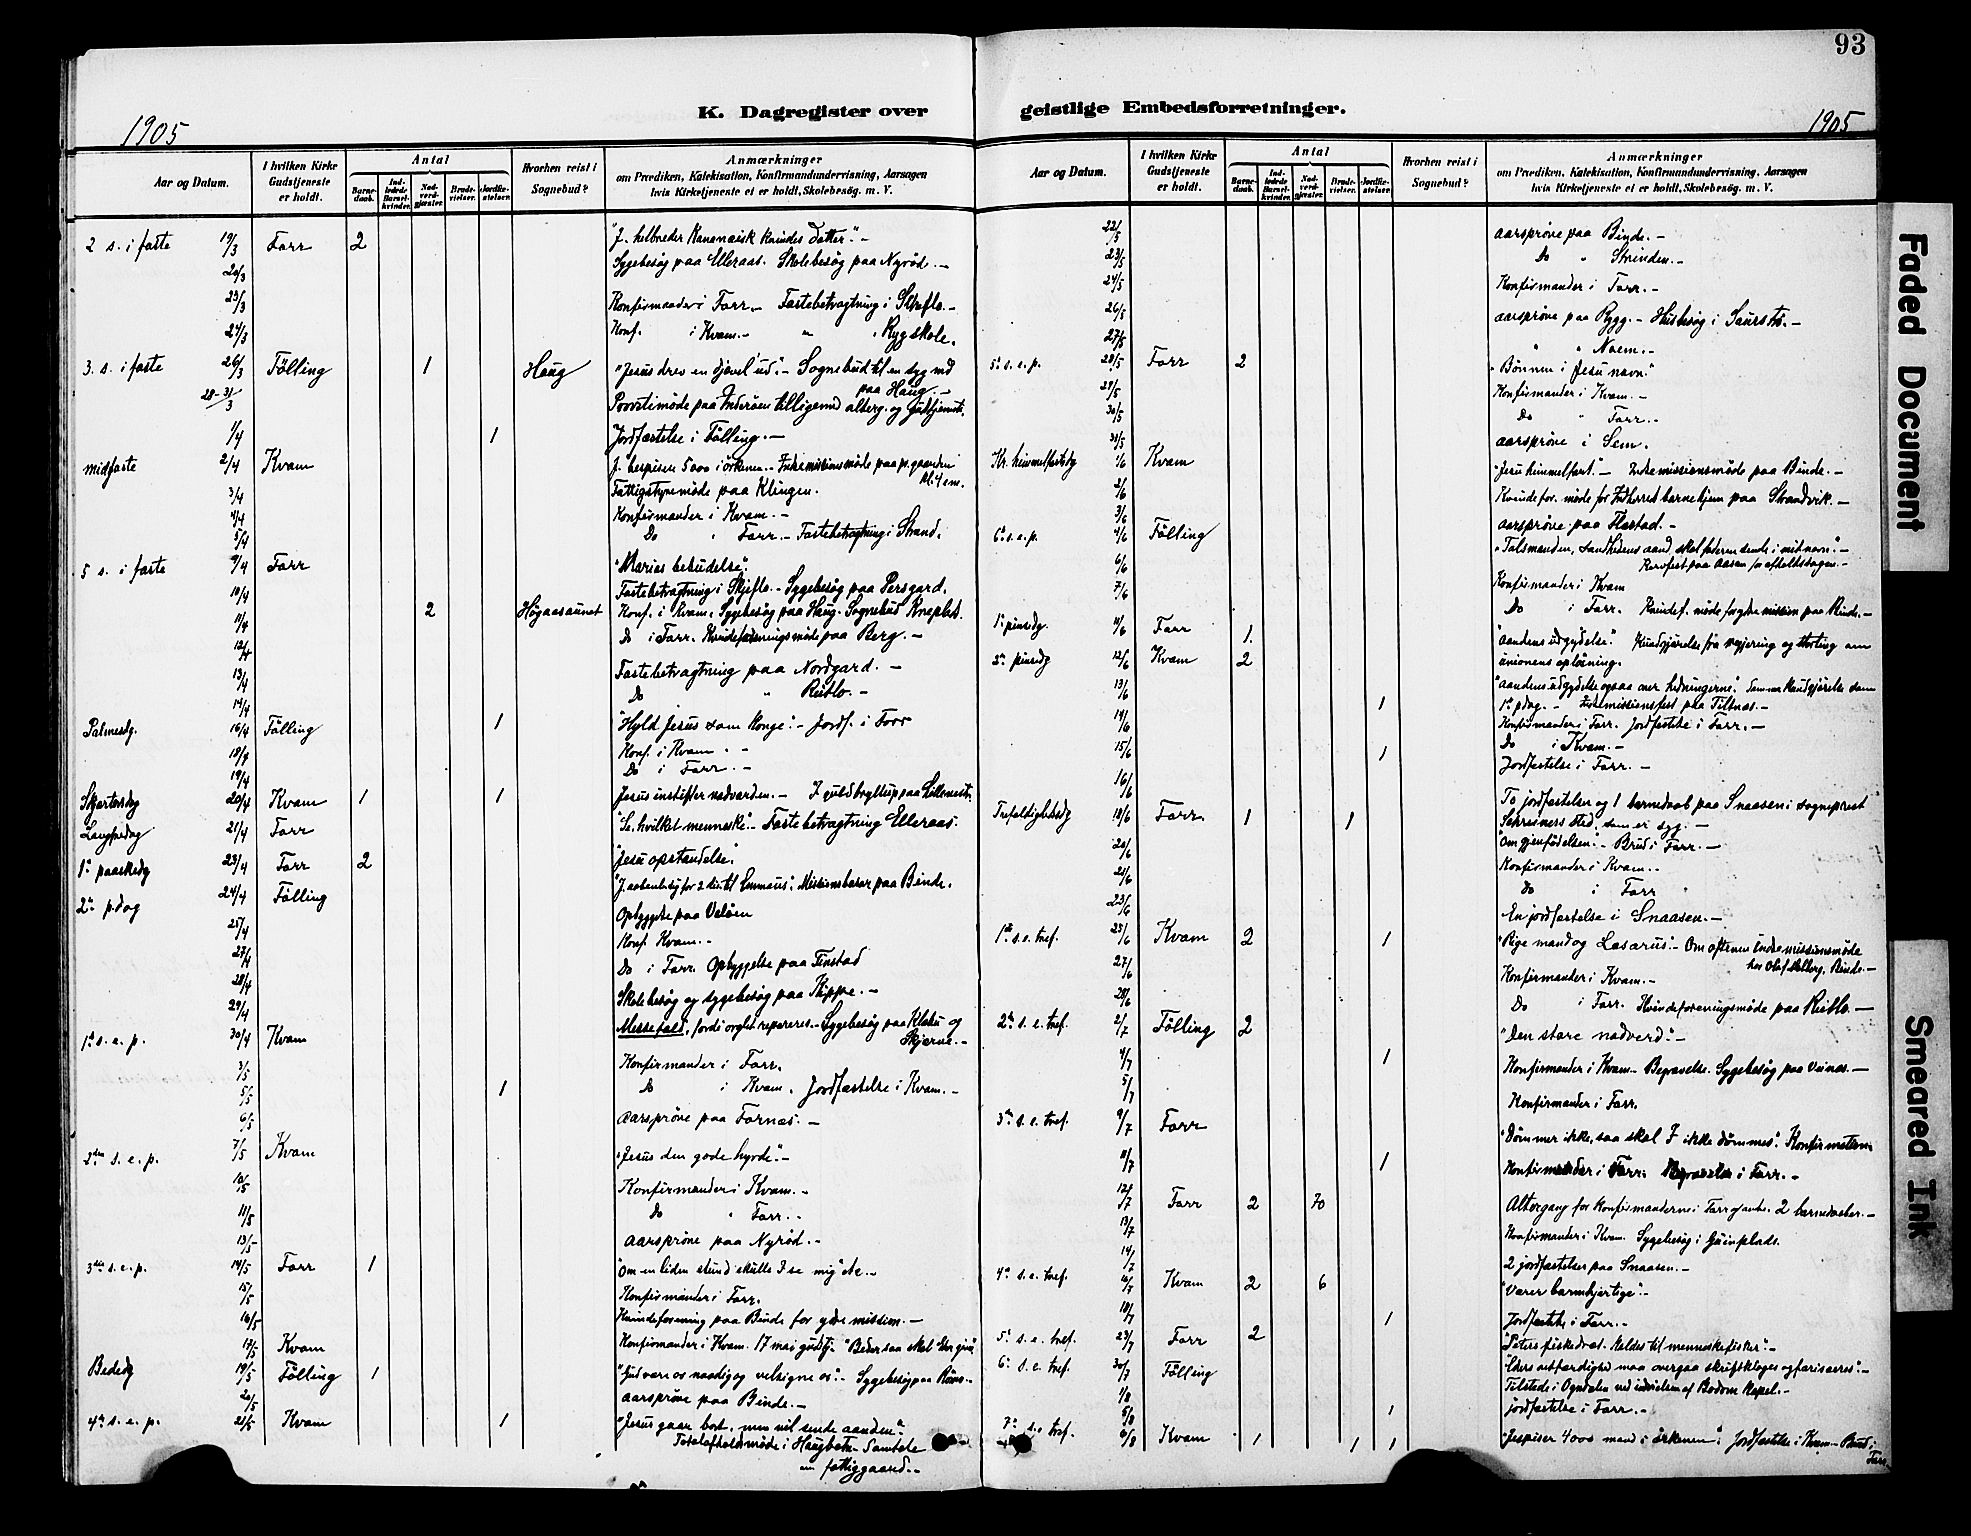 93
K. Dagregister over geistlige Embedsforretninger.
1905
1905
Aar og Datum.
I hvilken Kirke Gudstjeneste er holdt.
Antal
Barnedaab.
Indledede Barselkvinder.
Nadverdgjæster.
Brudevielser.
Jordfæstelser.
Hvorhen reist i Sognebud?
Anmærkninger
om Prædiken, Katekisation, Konfirmandundervisning, Aarsagen
hvis Kirketjeneste ei er holdt, Skolebesög. m. V.
2 s. i faste 19/3 Forr 2 "J. helbreder Kananæisk kvindes datter." -
20/3 Sygebesög paa Elleraas. Skolebesög paa Nyröd. -
23/3 Konfirmander i Forr. - Fastebetragtning i Skjefte. -
24/3 Konf. i Kvam. - " " Rygskole.
3. s. i faste 26/3 Fölling 1 Haug "Jesus drev en djævel ud". - Sognebud til en syg md
paa Haug -
28-31/3 Provstimöde paa Inderöen tilligemed alterg. og gudstjeneste.
1/4 1 Jordfæstelse i Fölling. -
midfaste 2/4 Kvam J. bespiser 5000 i örkenen. - Indremissionsmöde paa pr.gaarden
kl. 4 em.
3/4 Fattigstyremöde paa Klingen.
4/4 Konfirmander i Kvam. -
5/4 Do " Forr. - Fastebetragtning i Strand.
5 s. i faste 9/4 Forr "Marias bebudelse".
10/4 Fastebetragtning i Skjefte. - Sygebesög paa Persgard.
11/4 2 Högaasaunet Konf. i Kvam. Sygebesög paa Haug. Sognebud
12/4 Do i Forr. Kvindeforeningsmöde paa Berg. -
13/4 Fastebetragtning paa Nordgard. -
14/4 Do " Reitlo. -
Palmesdg. 16/4 Fölling 1 "Hyld Jesus som konge". - Jordf. i Forr
18/4 Konf. i Kvam - -
19/4 Do i Forr. -
Skjærtorsdg 20/4 Kvam 1 1 Jesus instifter nadverden. - I guldbryllup paa
Langfredag 21/4 Forr "Se, hvilket menneske". - Fastebetragtning Elleraas.
1ste paaskedg 23/4 Forr 2 "Jesu opstandelse".
2den p.dag 24/4 Fölling "J. aabenb. sig for 2 dis. til Emmaus". Missionsbasar paa Binde.
25/4 Opbyggelse paa Velöen
27/4 Konf. Kvam. -
28/4 Do i Forr. Opbyggelse paa Finstad
29/4 Skolebesög og sygebesög paa Kippe. -
1ste s. e. p. 30/4 Kvam Messefald, fordi orglet repareres. - Sygebesög paa Kloku og
Skjerve. -
3/5 Konfirmander i Forr.
5/5 1 Do i Kvam. Jordfæstelse i Kvam. -
6/5 aarspröve paa Fornes. -
2den s. e. p. 7/5 Kvam "Jesus den gode hyrde". -
10/5 Konfirmander i Kvam. -
11/5 Do " Forr. -
13/5 aarspröve paa Nyröd. -
3die s. e. p. 14/5 Forr 1 "Om en liden stund skulle I se mig" etc. -
15/5 Konfirmander i Forr.
16/5 Kvindeforening paa Binde for ydre mission. -
17/5 Kvam Konfirmander i Kvam. 17 mai gudstj.
Bededg 19/5 Fölling 1 "Gud være os naadig og velsigne os". - Sygebesög paa
20/5 aarspröve paa Binde. -
4de s. e. p. 21/5 Kvam 1 "Jesus gaar bort, men vil sende aanden".
Totalafholdsmöde i Samtale
om fattiggaard. -
Aar og Datum.
I hvilken Kirke Gudstjeneste er holdt.
Antal
Barnedaab.
Indledede Barselkvinder.
Nadverdgjæster.
Brudevielser.
Jordfæstelser.
Hvorhen reist i Sognebud?
Anmærkninger
om Prædiken, Katekisation, Konfirmandundervisning, Aarsagen
hvis Kirketjeneste ei er holdt, Skolebesög. m. V.
22/5 aarspröve paa Binde. -
23/5 Do " Strinden. -
24/5 Konfirmander i Forr. -
26/5 aarspröve paa Rygg. - Husbesög i
27/5 " " Noem. -
5te s. e. p. 28/5 Forr 2 "Bönnen i Jesu navn".
29/5 Konfirmander i Kvam. -
30/5 Do " Forr. -
31/5 aarspröve i Sem. -
Kr. himmelfartsdg 1/6 Kvam "Jesu himmelfart". - Indremissionsmöde paa Binde. -
2/6 Kvindefor. möde for Indherred barnehjem paa Strandvik. -
3/6 aarspröve paa Flestad. -
6te s. e. p. 4/6 Fölling "Talsmanden, sandhedens aand, skal faderen sende i mit navn". -
paa Aasen for afholdssagen. -
6/6 Konfirmander i Kvam
7/6 Do i Forr. Kvindef. möde for ydre mission paa Binde. -
1ste pinsedg. 11/6 Forr 1. "aandens udgydelse". Kundgjörelse fra regjering og storting om
unionens oplösning.
2den pinsedg 12/6 Kvam 2 "aandens udgydelse ogsaa over hedningerne". Samme kundgjörelse som
1ste pdag. - Indremissionsfest paa Tiltnes. -
13/6 1 Konfirmander i Forr. Jordfæstelse i Forr. -
14/6 Do i Kvam. -
15/6 1 Jordfæstelse i Forr. -
16/6 To jordfæstelser og 1 barnedaab paa Snaasen i sogneprest
Schreiners sted, som er syg. -
Trefoldighedsdg 18/6 Forr 1 1 "Om gjenfödelsen". - Brud i Forr. -
20/6 Konfirmander i Kvam. -
21/6 Do i Forr
23/6 En jordfæstelse i Snaasen. -
1ste s. e. tref. 25/6 Kvam 2 1 "Rige mand og Lasarus". - Om aftenen indremissionsmöde
hos Olaf Melberg, Binde. -
27/6 Konfirmander i Kvam. -
28/6 Do i Forr. Kvindeforeningsmöde paa Reitlo. -
2den s. e. tref. 2/7 Fölling 2 "Den store nadverd". -
4/7 1 Konfirmander i Kvam. Begravelse. Sygebesög paa Vines. -
5/7 Konfirmander i Forr.
3die s. e. tref. 9/7 Forr "Dömmer ikke, saa skal I ikke dömmes". Konfirmation.
11/7 1 Konfirmander i Forr. Begravelse i Forr. -
12/7 Forr 2 70 Altergang for konfirmanderne i Forr 2 barnedaaber. -
13/7 Konfirmander i Kvam. Sygebesög i
14/7 2 jordfæstelser paa Snaasen. -
4de s. e. tref. 16/7 Kvam 2 6 "Værer barmhjertige". -
18/7 1 Jordfæstelse i Forr. -
5te s. e. tref. 23/7 Forr 2 "Peters fiskedræt. Kaldes til menneskefisker". -
6te s. e. tref. 30/7 Fölling "Eders retfærdighed maa overgaa skriftkloges og farisæeres". -
1/8 Tilstede i Ogndalen ved indvielsen af Bodom Kapel. -
5/8 1 Jordfæstelse i Forr. -
7de s. e. tref. 6/8 Kvam 1 1 1 "J. bespiser 4000 mand i örkenen". Jordfæstelse i Kvam. - Brud i
Forr.
Faded Document
Smeared Ink